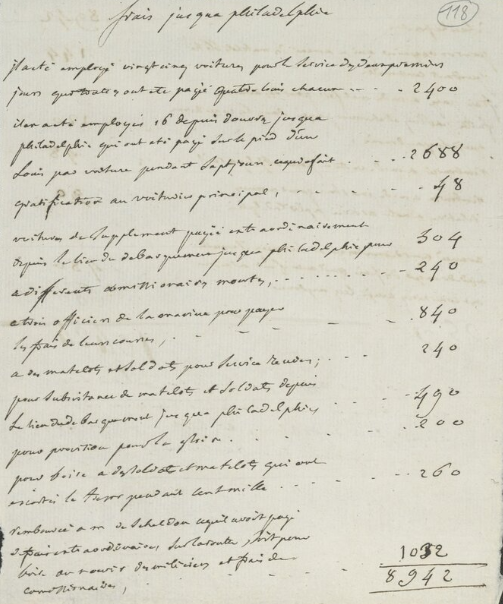 frais jusqua philadelphie
118
il a eté employé vingt cinq voitures pour le service des deux premiers
jours qui toutes y ont eté payé quatre louis chacun 2400
il en a eté employés 16 depuis douvre jusqua
philadelphie qui ont eté payé sur le pied d'un
louis par voiture pendant sept jours, ce qui fait 2688
gratification au voiturier principal, 48
voitures de supplement payié extraordinairement
depuis le lieu de debarquement jusqua philadelphie pour 304
a differents commissionaires montes, 240
a trois officiers de la marine pour payer
les frais de leurs courses, 840
a des matelots et soldats pour service rendus; 240
pour subsistance de matelots et soldats depuis
le lieu de debarquement jusqua philadelphie 490
pour provition pour la 200
pour boire a des soldats et matelots qui ont
escortés le tresor pendant cent mille 260
remboursé a m. de Scheldon ce qu'il avoit payé
de frais extraordinaires sur la route, soit pour
boire ou nourir des miliciens et frais de
comissionaires, 1032
8942